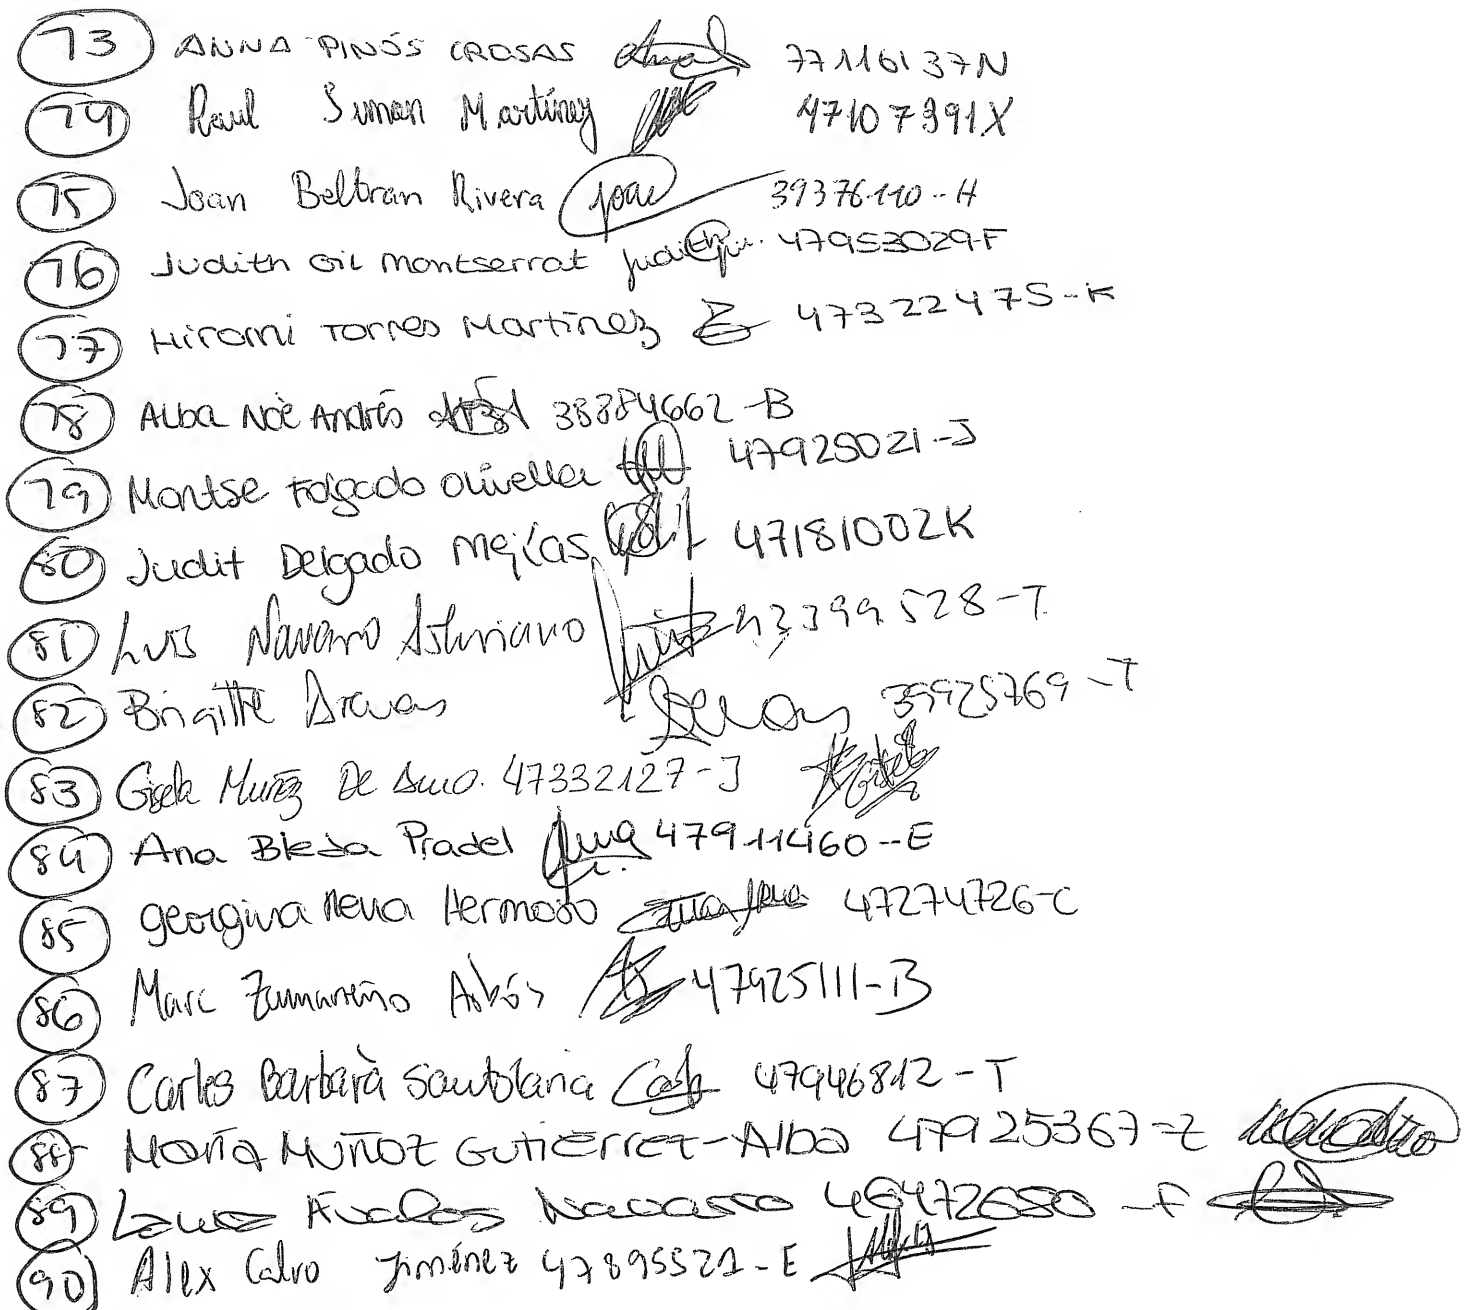 73 ANNA PINÓS CROSAS 77116137N
74 Raul Simon Martínez 47107391X
75 Joan Beltran Rivera joan 39376110-H
76 Judith Gil Montserrat 47953029-F
77 Hiromi Torres Martínez 47322475-K
78 Alba Noè Andrés 38884662-B
79 Montse Folgado Olivella 47925021-J
80 Judit Delgado Mejías 47181002K
81 Luis Navarro 43399528-T
82 Brigitte 39925769-T
83 Gisela Muñoz De 47332127-J
84 Ana Bleda Pradel 47911460-E
85 georgina Nena Hermoso 47274726-C
86 Marc Zumareño 47925111-B
87 Carles Barbarà 47946812-T
88 María Muñoz Gutiérrez-Alba 47925367-Z
89 Laura Avalos Navarro 46472680-F
90 Alex Calvo Jiménez 47895521-E